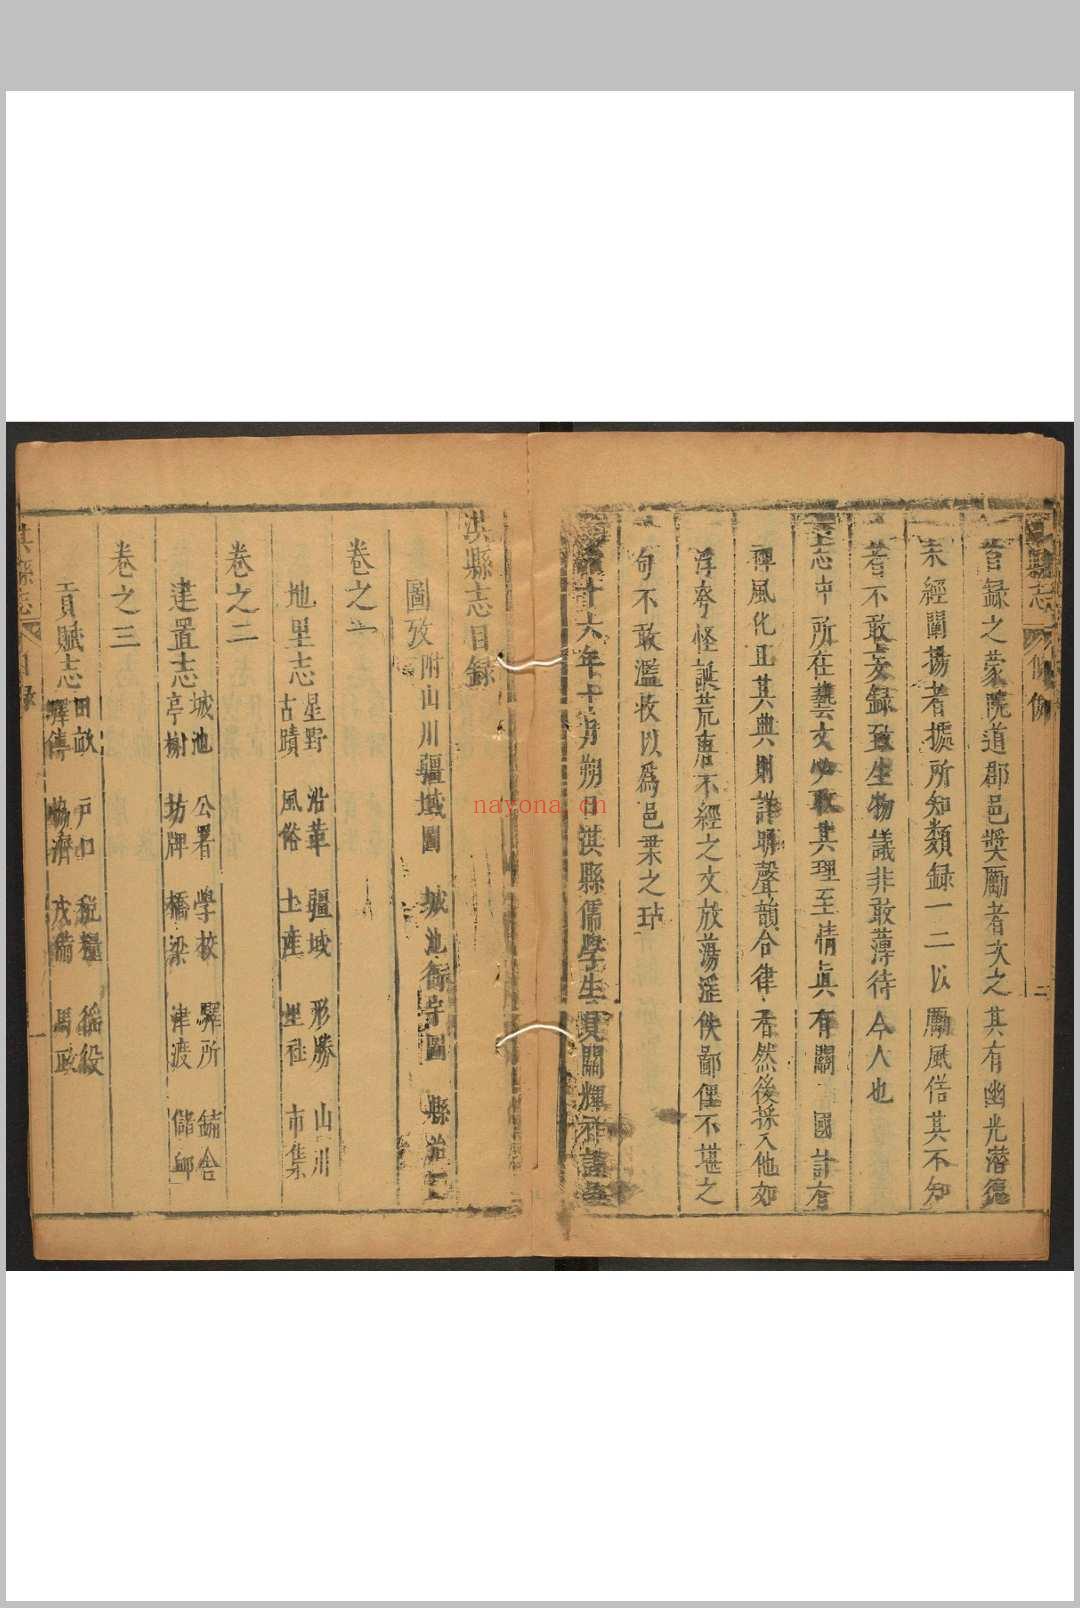 縣志
凡例
二
旨録之蒙院道郡邑奬勵者次之其有幽光潛德
未經闡揚者據所知類録一二以勵風俗其不知
者不敢妄録致生物議非敢薄待今人也
志中所在藝文必取其理至情真有關國計有
裨風化且其典則詳明聲韻合律者然後採入他如
浮夸怪誕荒唐不經之文放蕩淫佚鄙俚不堪之
句不敢濫收以爲邑乗之玷
十六年十月朔日淇縣儒學生員關
淇縣志目録
圖攷附山川疆域圖 城池衙宇圖 縣治
卷之一
地里志
星野 沿革 疆域 形勝 山川
古蹟 風俗 土産 里社 市集
卷之二
建置志
城池 公署 學校 驛所 舖舎
亭榭 坊牌 橋梁 津渡 儲邮
卷之三
貢賦志
田畝 戸口 税糧 徭役
驛傳 協濟 戎備 馬政
淇縣志
目録
一
nayona.cn